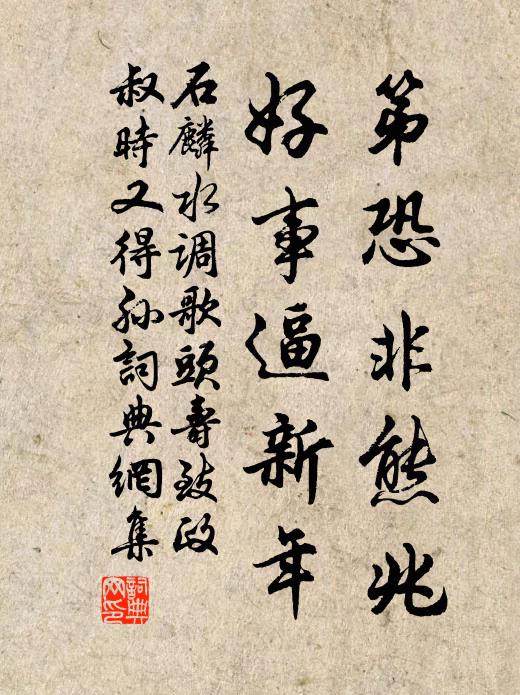 第恐非熊兆
好事逼新年
石麟水调歌頭壽致政
叔時又得孫詞典網集
詞典